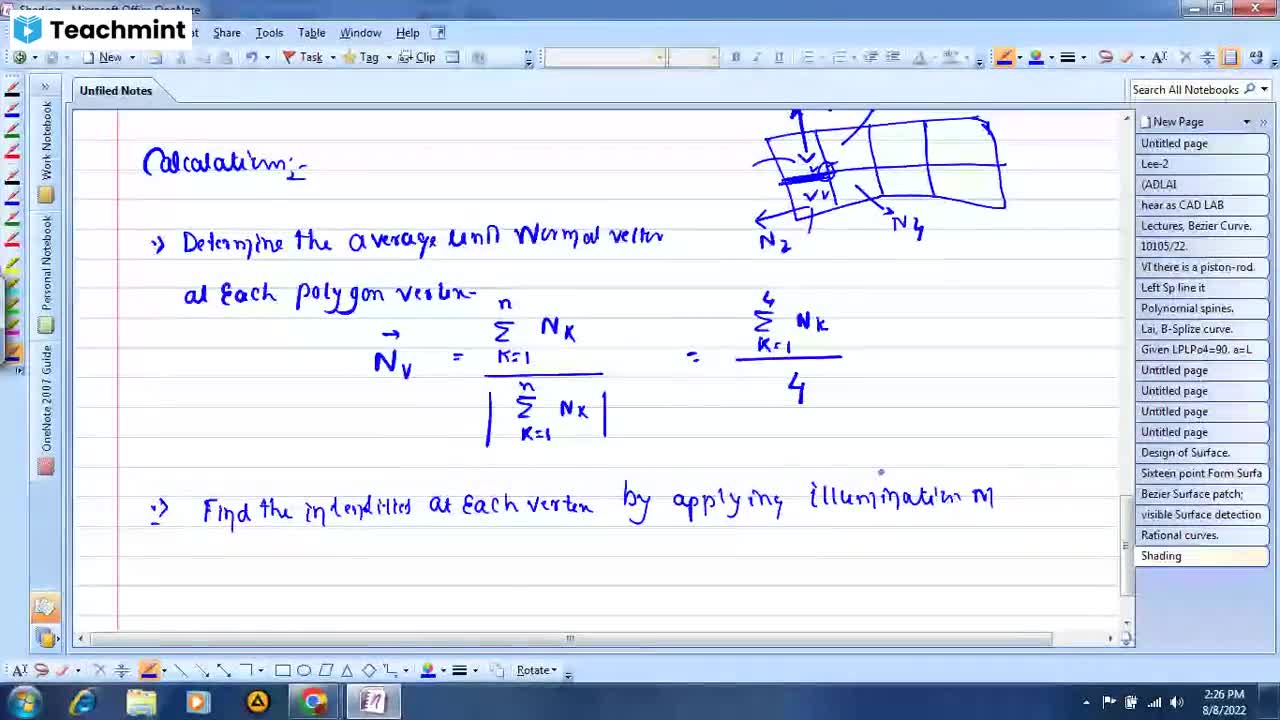 Shading - Microsoft Office OneNote
Teachmint
Share Tools Table Window Help
New Task Tag Clip
Unfiled Notes
Search All Notebooks
Work Notebook
Personal Notebook
OneNote 2007 Guide
Calculation:-
Determine the average unit Normal vector
at Each polygon vertex
N2
N4
V
n
Σ NK
K=1
NV =
n
| Σ NK |
K=1
=
4
Σ NK
K=1
4
Find the intensities at Each vertex by applying illumination M
New Page
Untitled page
Lee-2
(ADLAI
hear as CAD LAB
Lectures, Bezier Curve.
10105/22.
VI there is a piston-rod.
Left Sp line it
Polynomial spines.
Lai, B-Splize curve.
Given LPLPo4=90. a=L
Untitled page
Untitled page
Untitled page
Untitled page
Design of Surface.
Sixteen point Form Surfa
Bezier Surface patch;
visible Surface detection
Rational curves.
Shading
Rotate
2:26 PM
8/8/2022